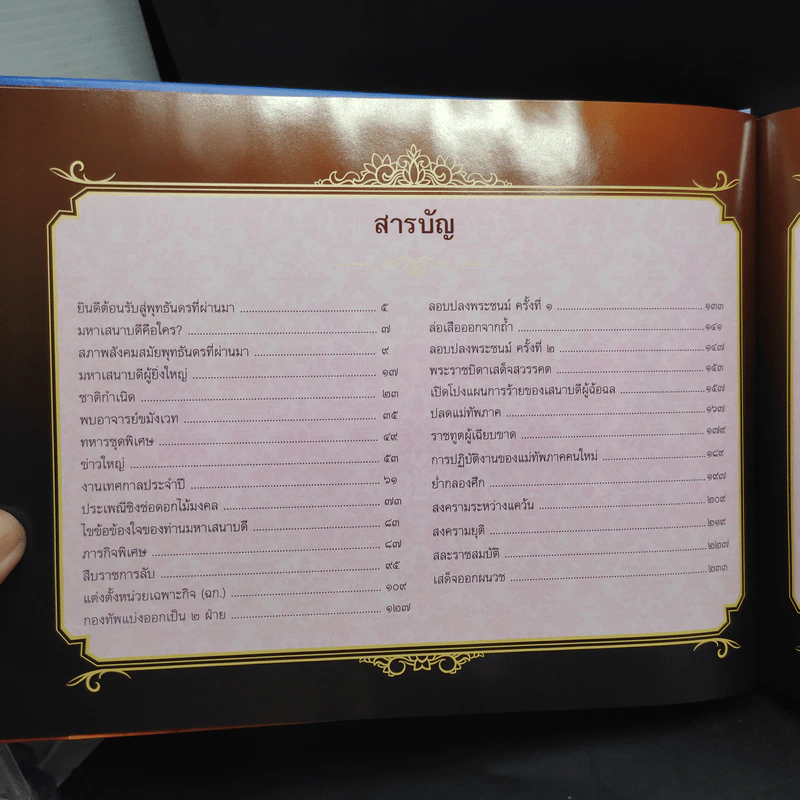 สารบัญ
ยินดีต้อนรับสู่พุทธันดรที่ผ่านมา ๕
มหาเสนาบดีคือใคร? ๗
สภาพสังคมสมัยพุทธันดรที่ผ่านมา ๙
มหาเสนาบดีผู้ยิ่งใหญ่ ๑๗
ชาติกำเนิด ๒๓
พบอาจารย์ขมังเวท ๓๕
ทหารชุดพิเศษ ๔๙
ข่าวใหญ่ ๕๓
งานเทศกาลประจำปี ๖๑
ประเพณีชิงช่อดอกไม้มงคล ๗๓
ไขข้อข้องใจของท่านมหาเสนาบดี ๘๓
ภารกิจพิเศษ ๘๗
สืบราชการลับ ๙๕
แต่งตั้งหน่วยเฉพาะกิจ (ฉก.) ๑๐๙
กองทัพแบ่งออกเป็น ๒ ฝ่าย ๑๒๗
ลอบปลงพระชนม์ ครั้งที่ ๑ ๑๓๓
ล่อเสือออกจากถ้ำ ๑๔๑
ลอบปลงพระชนม์ ครั้งที่ ๒ ๑๔๗
พระราชบิดาเสด็จสวรรคต ๑๕๓
เปิดโปงแผนการร้ายของเสนาบดีผู้ฉ้อฉล ๑๕๗
ปลดแม่ทัพภาค ๑๖๗
ราชทูตผู้เฉียบขาด ๑๗๙
การปฏิบัติงานของแม่ทัพภาคคนใหม่ ๑๘๙
ย่ำกลองศึก ๑๙๗
สงครามระหว่างแคว้น ๒๐๙
สงครามยุติ ๒๑๙
สละราชสมบัติ ๒๒๗
เสด็จออกผนวช ๒๓๓